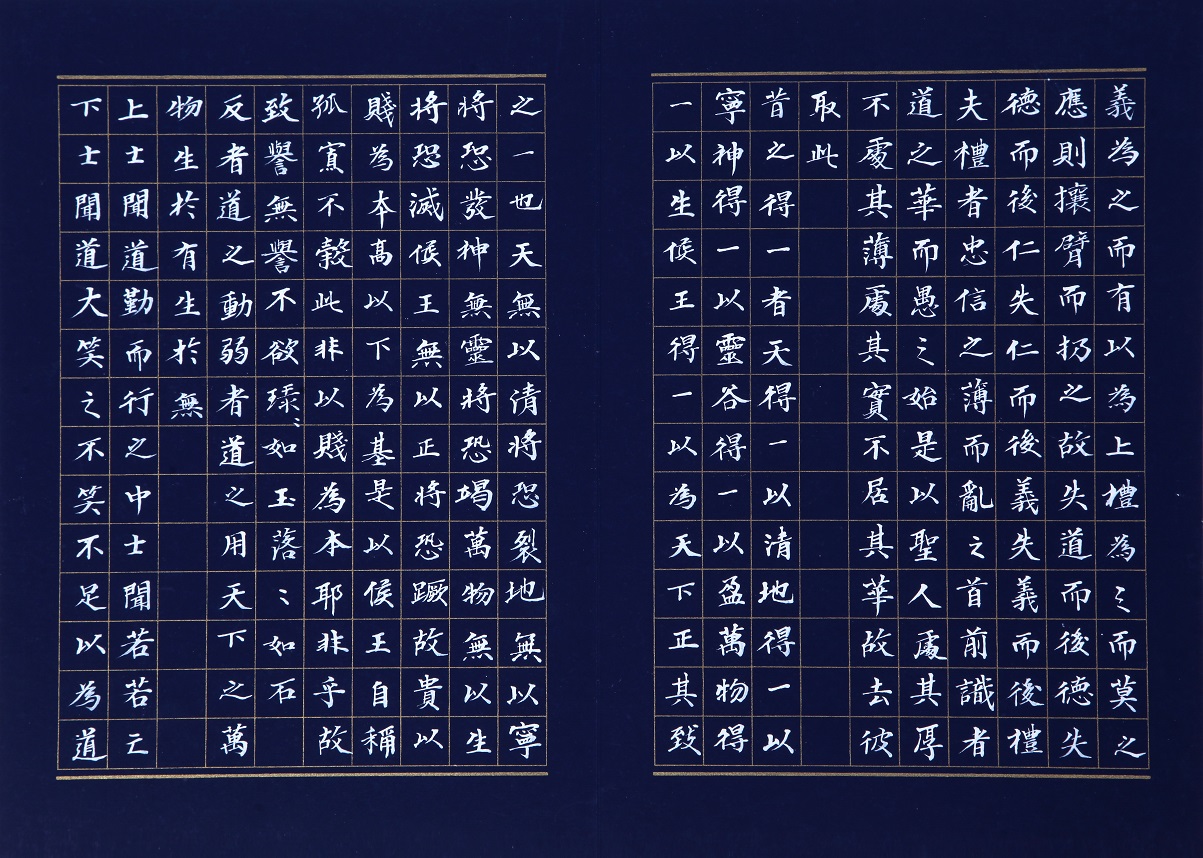 義為之而有以為上禮為〻而莫之
應則攘臂而扔之故失道而後德失
德而後仁失仁而後義失義而後禮
夫禮者忠信之薄而亂之首前識者
道之華而愚〻始是以聖人處其厚
不處其薄處其實不居其華故去彼
取此
昔之得一者天得一以清地得一以
寧神得一以靈谷得一以盈萬物得
一以生候王得一以為天下正其致
之一也天無以清將恐裂地無以寧
將恐發神無靈將恐竭萬物無以生
將恐滅候王無以正將恐蹶故貴以
賤為本高以下為基是以侯王自稱
孤寡不穀此非以賤為本耶非乎故
致譽無譽不欲琭〻如玉落〻如石
反者道之動弱者道之用天下之萬
物生於有生於無
上士聞道勤而行之中士聞若若亡
下士聞道大笑之不笑不足以為道